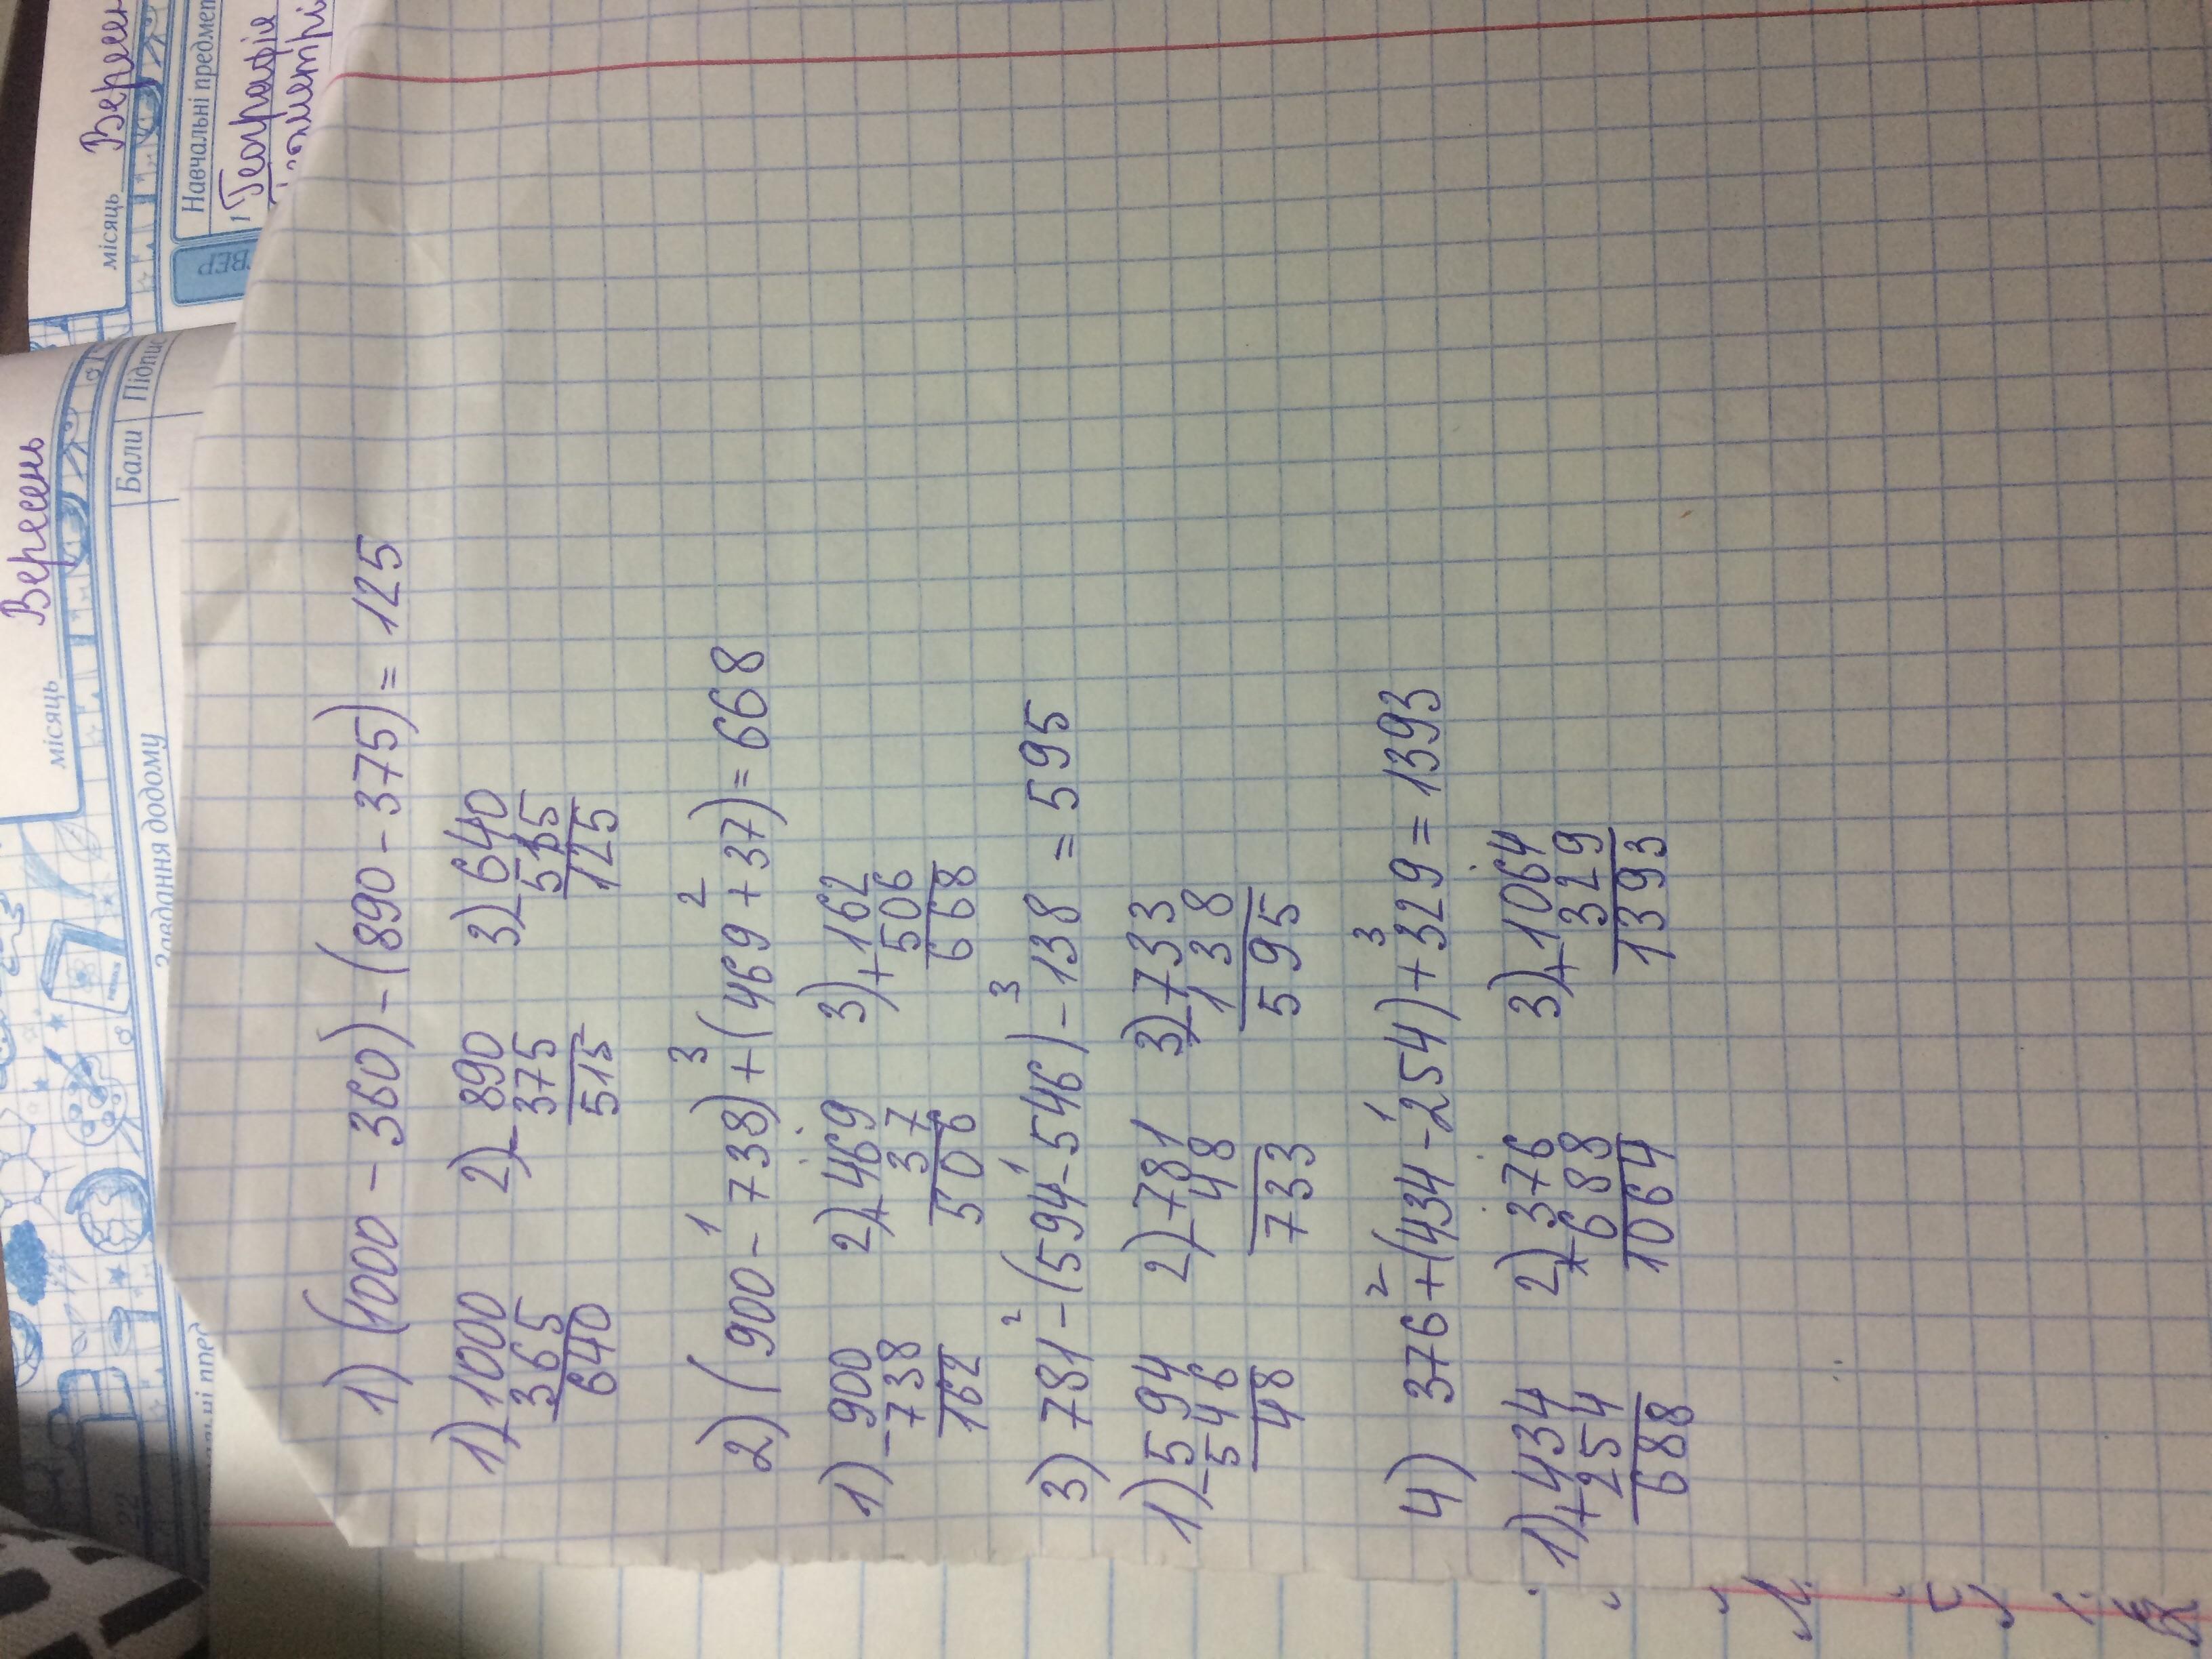 місяць Вересень
Бали Підпис
Завдання додому
місяць Верес
Навчальні предмет
1 Географія
1) (1000 - 360) - (890 - 375) = 125
1) - 1000 2) - 890 3) - 640
365 375 515
640 515 125
1 3 2
2) (900 - 738) + (469 + 37) = 668
1) - 900 2) + 469 3) + 162
738 37 506
162 506 668
2 1 3
3) 781 - (594 - 546) - 138 = 595
1) - 594 2) - 781 3) - 733
546 48 138
48 733 595
2 1 3
4) 376 + (434 - 254) + 329 = 1393
1) + 434 2) + 376 3) + 1064
254 688 329
688 1064 1393